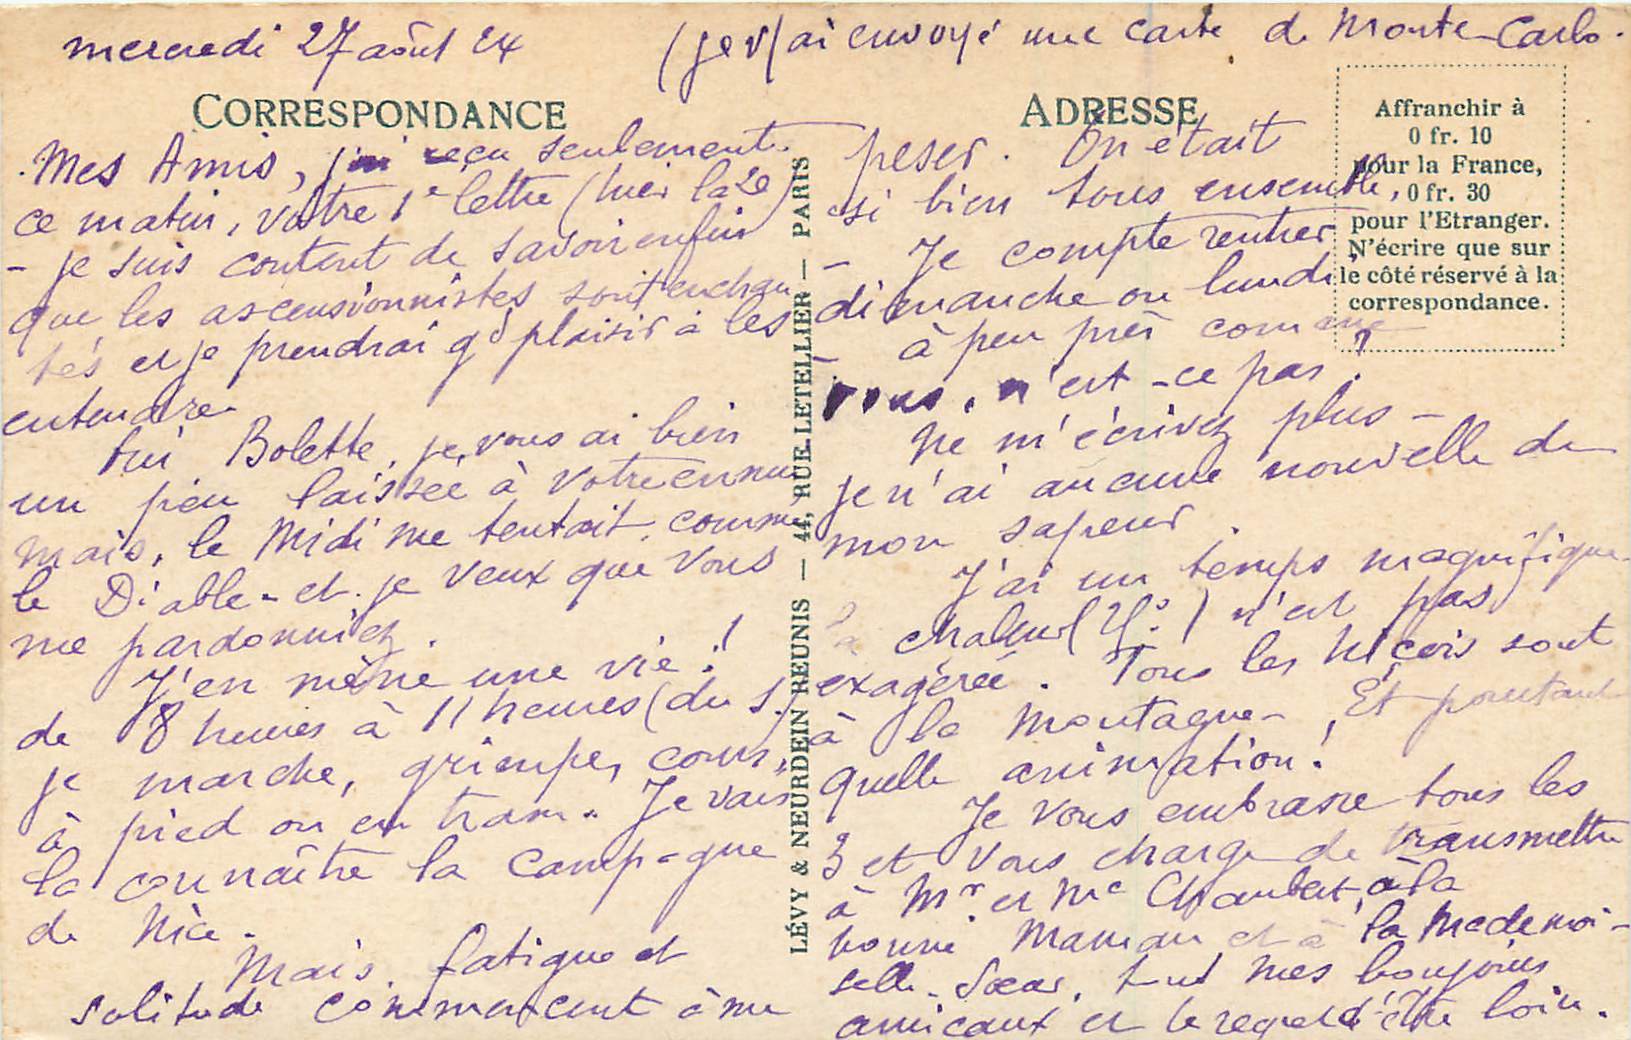 mercredi 27 août 24
(je v) ai envoyé une carte de Monte-Carlo.
CORRESPONDANCE
Mes Amis, j'ai reçu seulement
ce matin, votre 1e lettre (hier la 2e)
- je suis content de savoir enfin
que les ascensionnistes sont enchan
tés et je prendrai gd plaisir à les
entendre.
Oui Bolette, je vous ai bien
un peu laissée à votre ennui
mais, le Midi me tentait, comme
le Diable - et je veux que vous
me pardonniez.
J'en mène une vie !
de 8 heures à 11 heures (du s.)
je marche, grimpe, cours,
à pied ou en tram. Je vais
la connaître la camp-gne
de Nice.
Mais, fatigue et
solitude commencent à me
LÉVY & NEURDEIN REUNIS — 44, RUE LETELLIER — PARIS
ADRESSE
Affranchir à
0 fr. 10
pour la France,
0 fr. 30
pour l'Etranger.
N'écrire que sur
le côté réservé à la
correspondance.
peser. On était
si bien tous ensemble,
- Je compte rentrer
dimanche ou lundi,
à peu près comme
vous, n'est-ce pas ?
Ne m'écrivez plus -
je n'ai aucune nouvelle de
mon sapeur.
J'ai un temps magnifique
la chaleur ( ) n'est pas
exagérée. Tous les Niçois sont
à la montagne -, Et pourtant
quelle animation !
Je vous embrasse tous les
3 et vous charge de transmettre
à Mr et Me Chaubet, à la
bonne Maman et à la Mademoi-
selle-Sœur, tout mes bonjours
amicaux et le regret d'être loin.